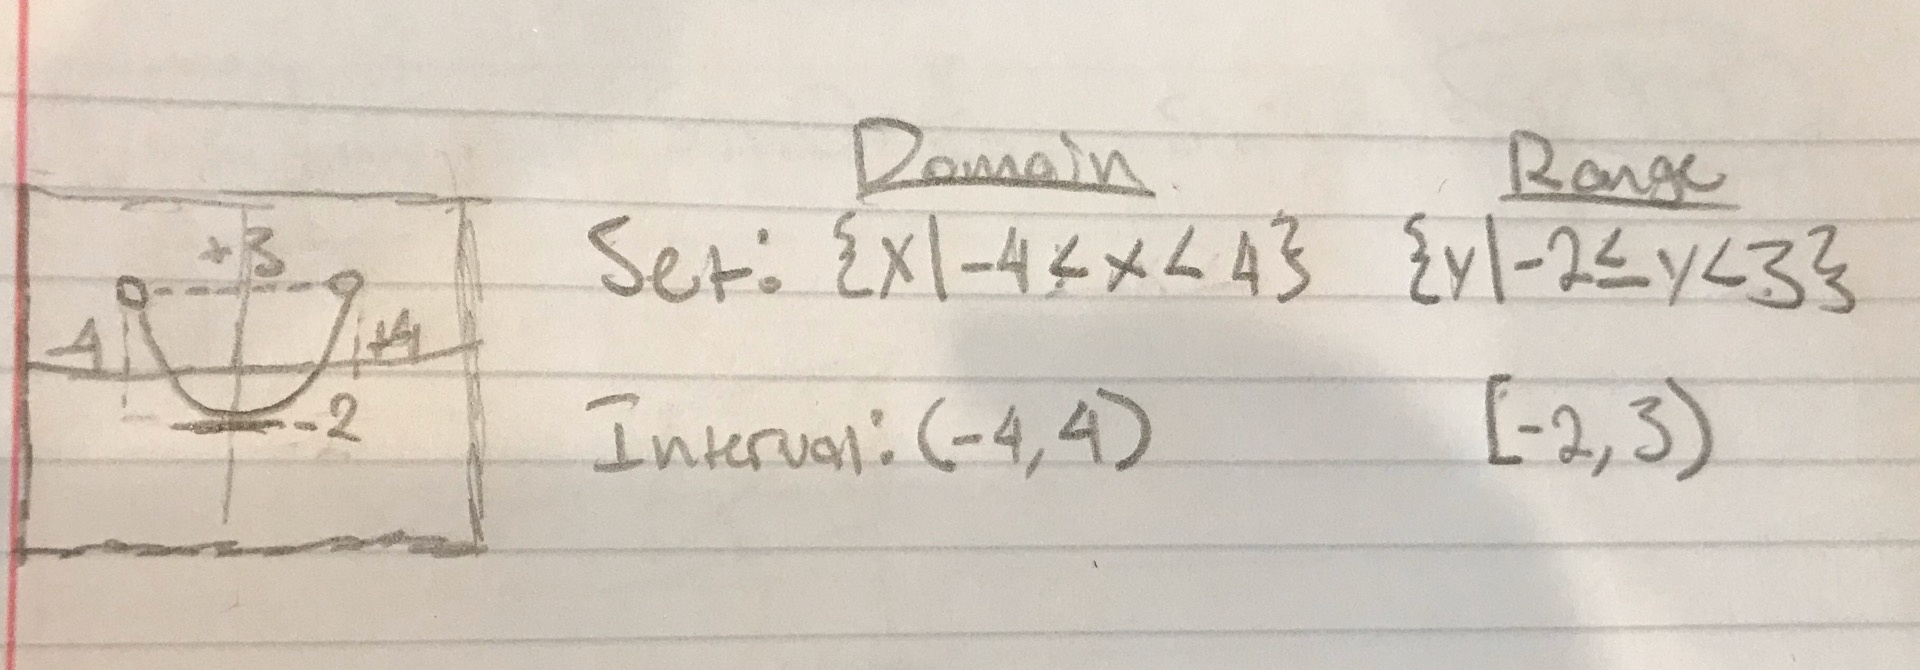 Domain Range
+3
Set: {x|-4<x<4} {y|-2≤y<3}
-4 +4
-2
Interval: (-4,4) [-2,3)